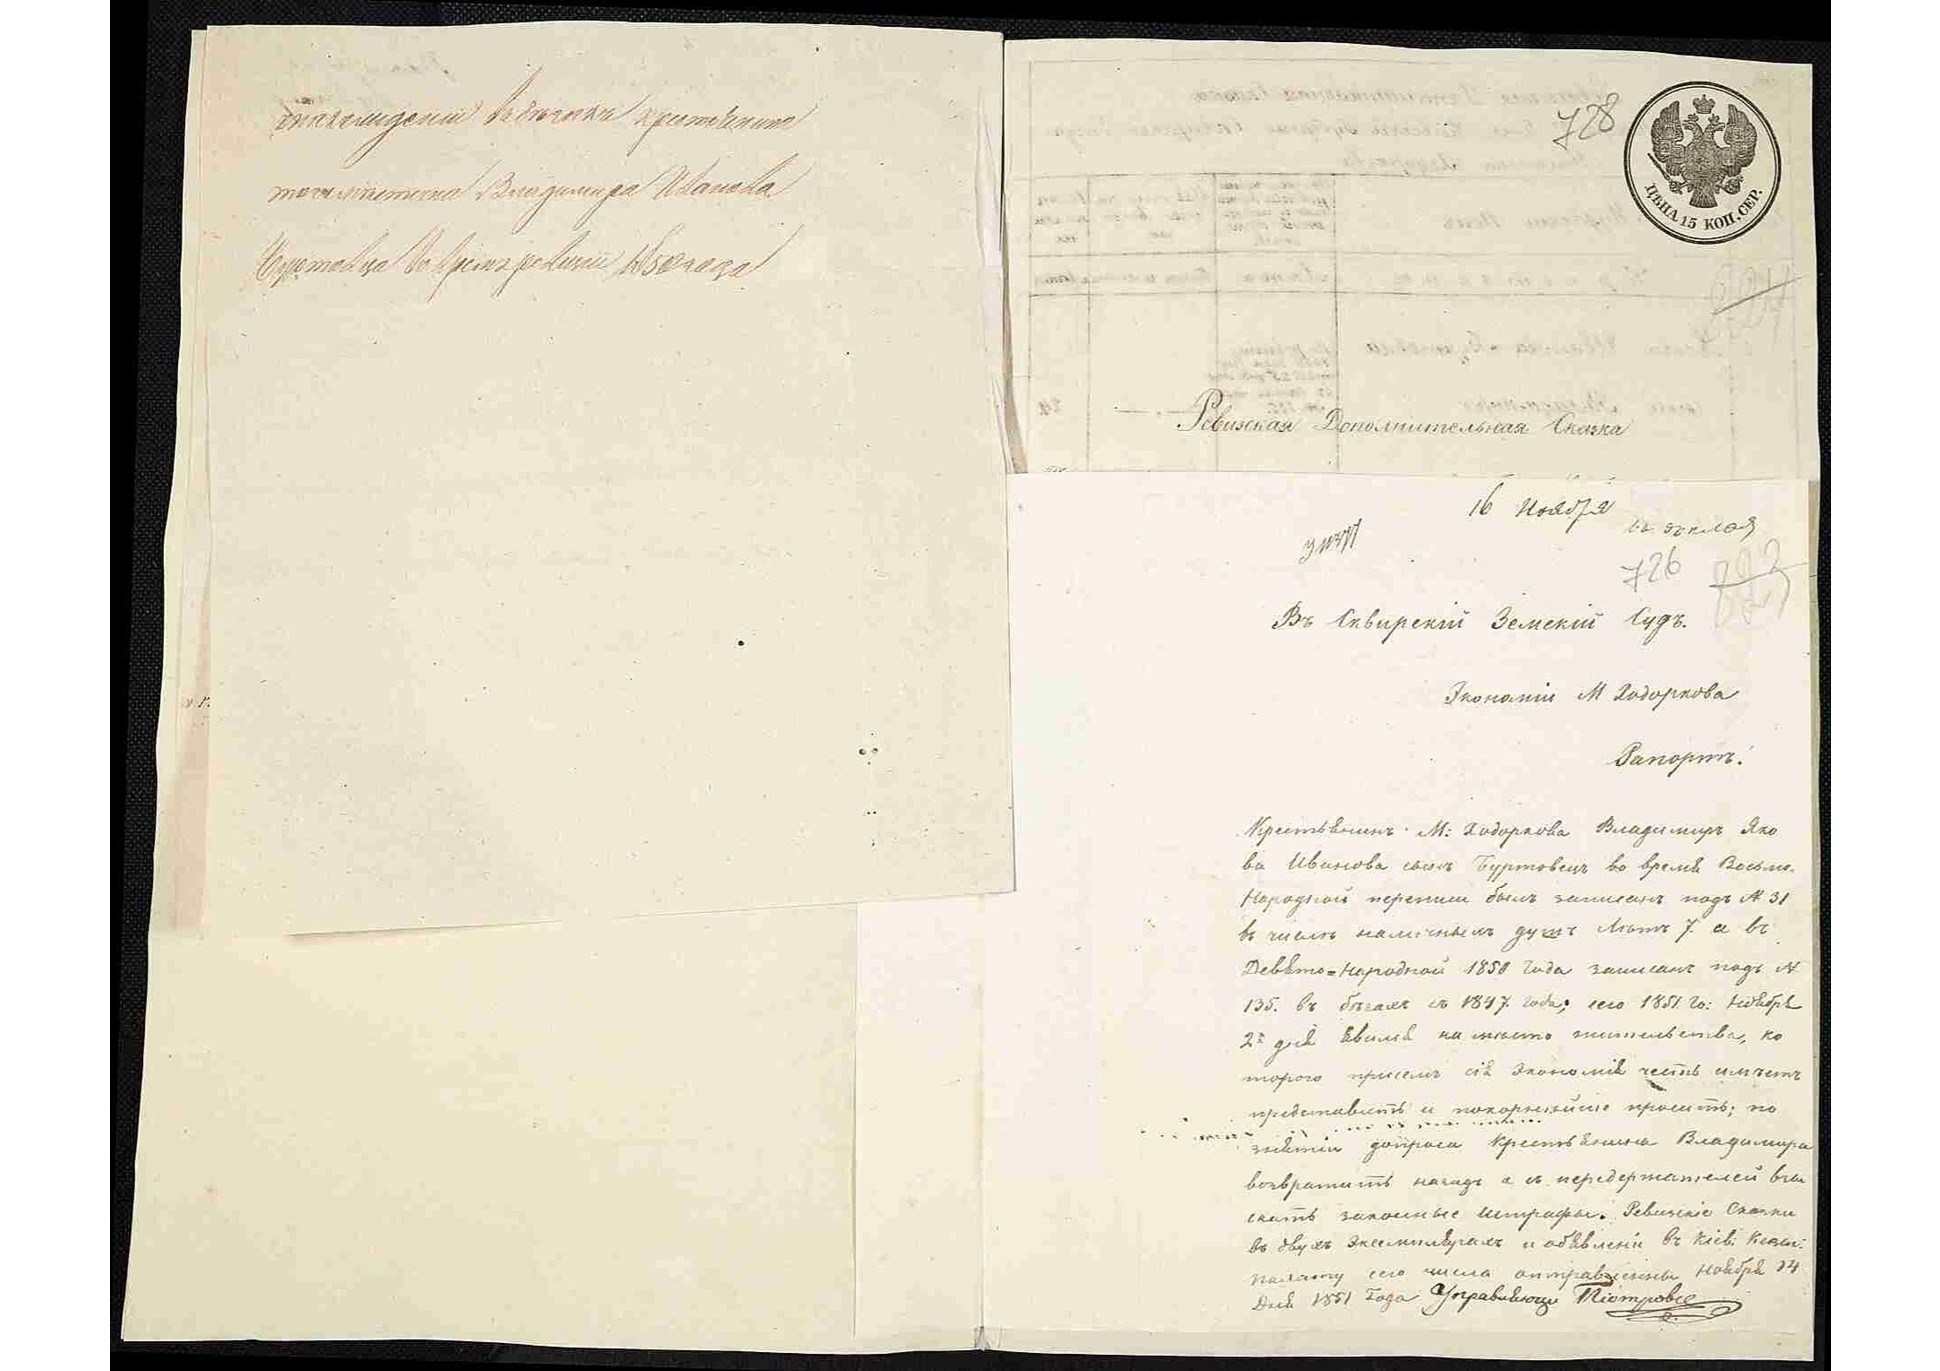 нахождении въ бегахъ крестьянина
Владимира Иванова
Буртовца во время ревизіи 1850 года
728
ЦѢНА 15 КОП. СЕР.
Ревизская Дополнительная Сказка
16 Ноября
726
Въ Сквирскій Земскій Судъ.
Экономіи М Ходоркова
Рапортъ.
Крестьянинъ М: Ходоркова Владимиръ Яко
ва Иванова сынъ Буртовецъ во время Восьмо-
Народной переписи былъ записанъ подъ N 31
въ числѣ наличныхъ душъ лѣтъ 7. а въ
Девято=Народной 1850 года записанъ подъ N
135. въ бѣгахъ съ 1847 года; сего 1851 го: Ноября
2го дня явился на место жительства, ко
торого при семъ сія Экономія честь имѣетъ
представить и покорнѣйше просить; по
знятіи допроса крестьянина Владимира
возвратить назадъ а съ передержателей взы
скать законные штрафы. Ревизкіе Сказки
въ двухъ экземплярахъ и объявленіи въ Кіев: Казен:
палату сего числа отправленны Ноября 14
Дня 1851 Года Управляющи